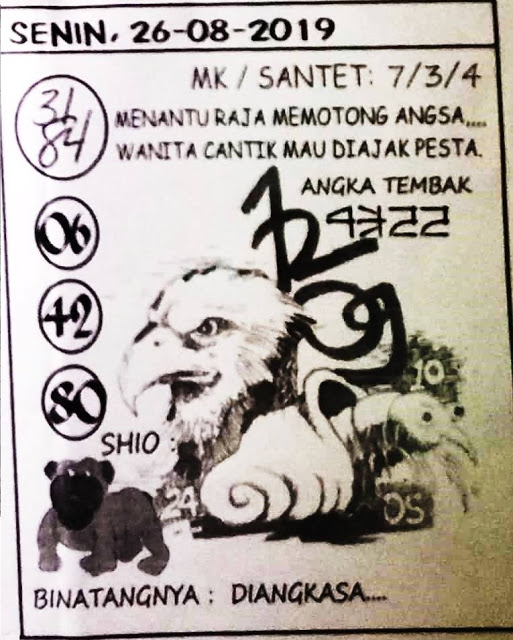 SENIN. 26-08-2019
MK / SANTET: 7/3/4
31
84
MENANTU RAJA MEMOTONG ANGSA....
WANITA CANTIK MAU DIAJAK PESTA.
ANGKA TEMBAK
4722
06
42
80
SHIO :
10
24
OS
BINATANGNYA : DIANGKASA....